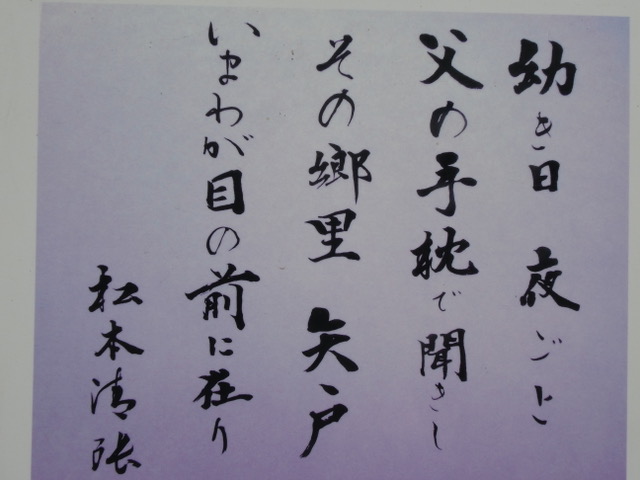 幼き日 夜ごと
父の手枕で聞きし
その郷里 矢戸
いまわが目の前に在り
松本清張